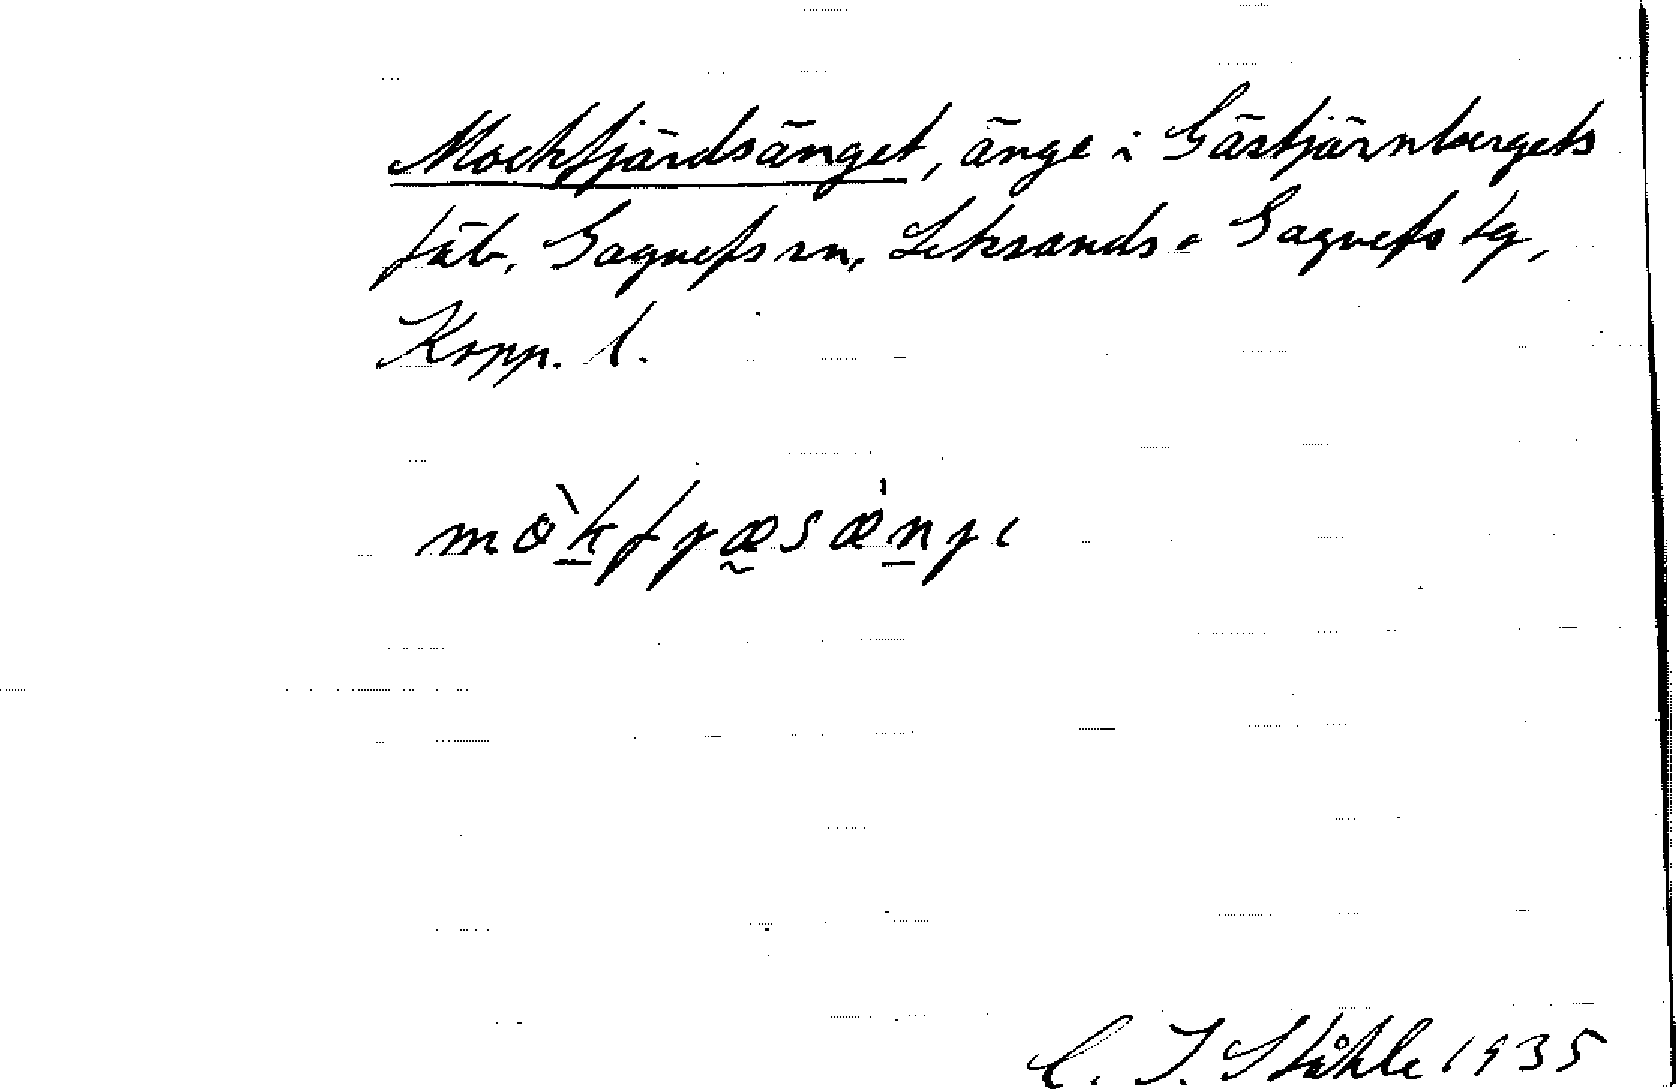 Mockfjärdsänget, änge i Gästjärnbergets
fäb., Gagnefs sn, Leksands o Gagnefs tg,
Kopp. l.
mö̀k̲fjæ̰sæ̍n̲jı
C. I. Ståhle 1935